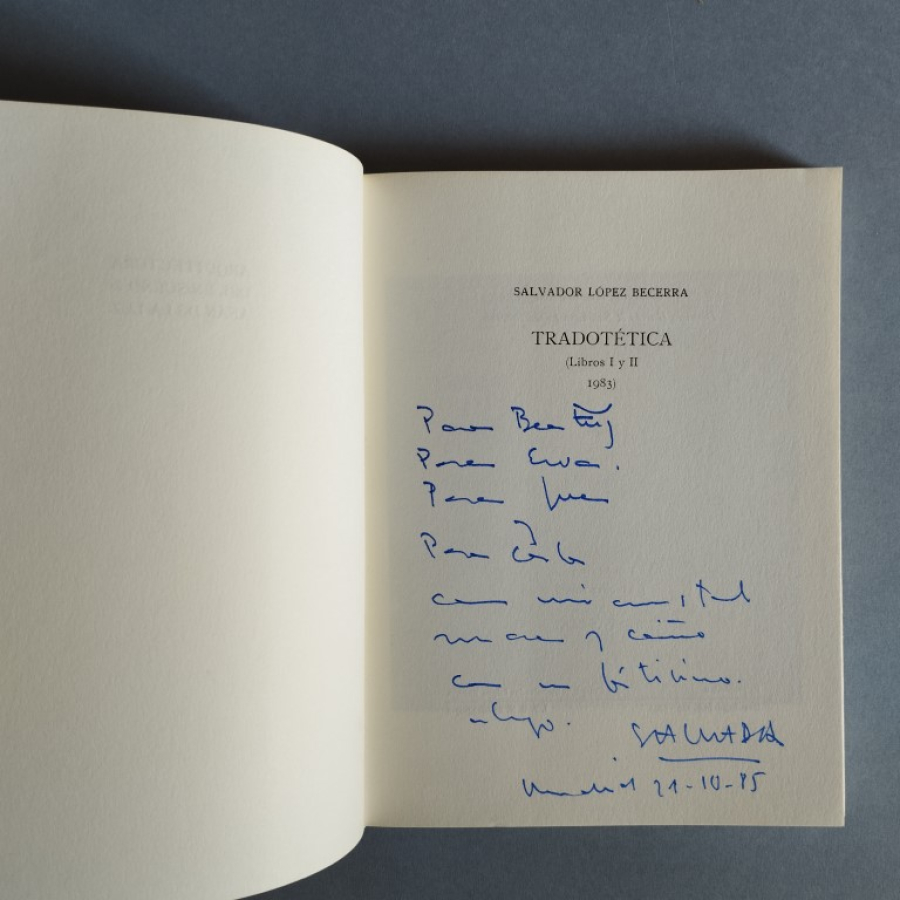 SALVADOR LÓPEZ BECERRA
TRADOTÉTICA
(Libros I y II
1983)
Para Beatriz
Para Eva.
Para
Para Carlos
con mi amistad
y cariño
con un
SALVADOR
Madrid 21-10-85